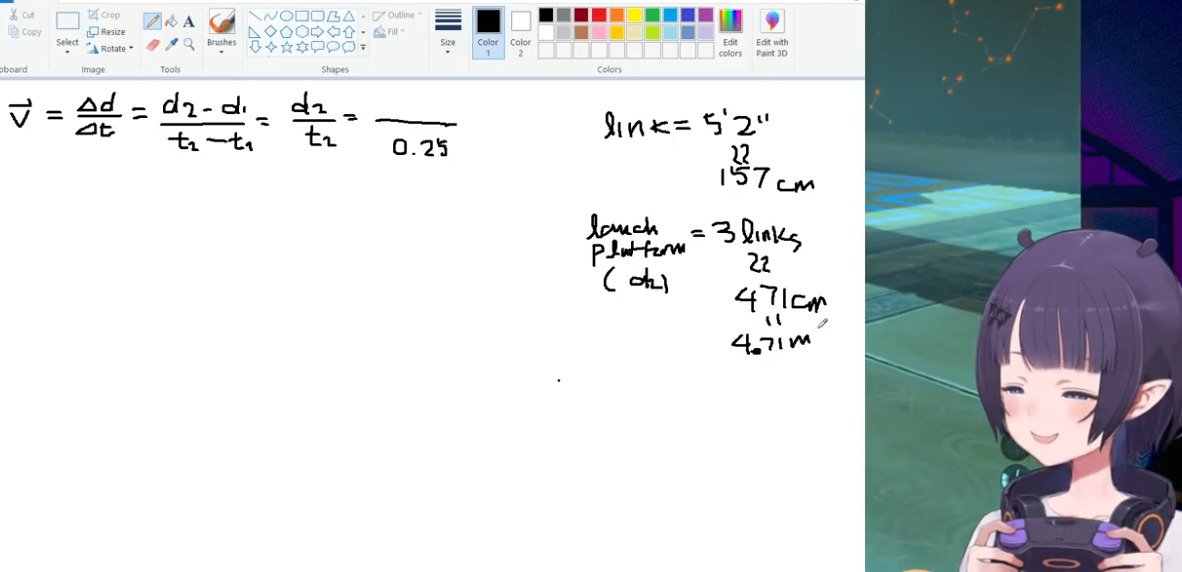 Cut
Copy
pboard
Select
Crop
Resize
Rotate
Image
A
Tools
Brushes
Outline
Fill
Shapes
Size
Color 1
Color 2
Edit colors
Colors
Edit with Paint 3D
v⃗ = Δd/Δt = d2 - d1/t2 - t1 = d2/t2 = /0.25
link = 5'2"
157 cm
lauch
platform = 3 links
(d2)
471cm
"
4.71m